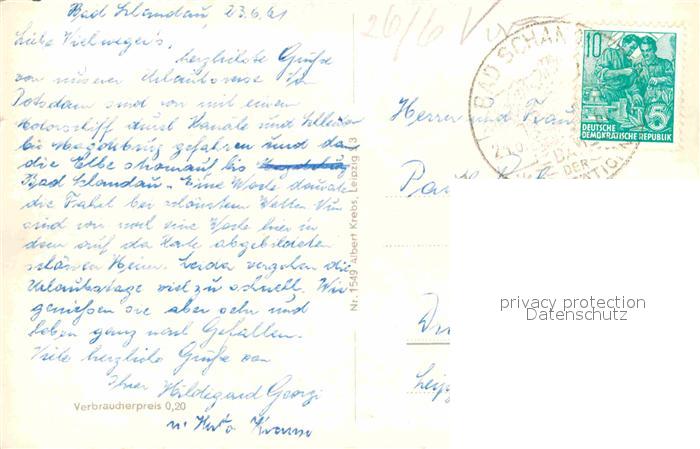 Bad Schandau, 23.6.61
Liebe Vielweger's,
herzlichste Grüße
von unserer Urlaubsreise. In
Potsdam sind wir mit einem
Motorschiff durch Kanäle und Schleusen
bis Magdeburg gefahren und dann
die Elbe stromauf bis
Bad Schandau. Eine Woche dauerte
die Fahrt bei schönstem Wetter. Nun
sind wir noch eine Woche hier in
dem auf der Karte abgebildeten
schönen Heim. Leider vergehen die
Urlaubstage viel zu schnell. Wir
genießen sie aber sehr und
leben ganz nach Gefallen.
Viele herzliche Grüße von
Ihrer Hildegard Georgi
u. Herta
Verbraucherpreis 0,20
Nr. 1549 Albert Krebs, Leipzig
26/6
BAD SCHAN
10
DEUTSCHE
DEMOKRATISCHE REPUBLIK
5
DER
Herrn und Frau
privacy protection
Datenschutz
Leipz